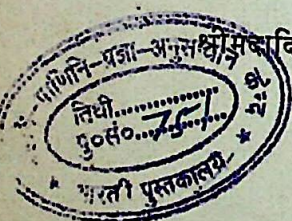 पाणिनि-प्रज्ञा-अनुसन्धान
श्रीमदादि
तिथी..............
पु०सं०.. 751 ..........
भारती पुस्तकालये